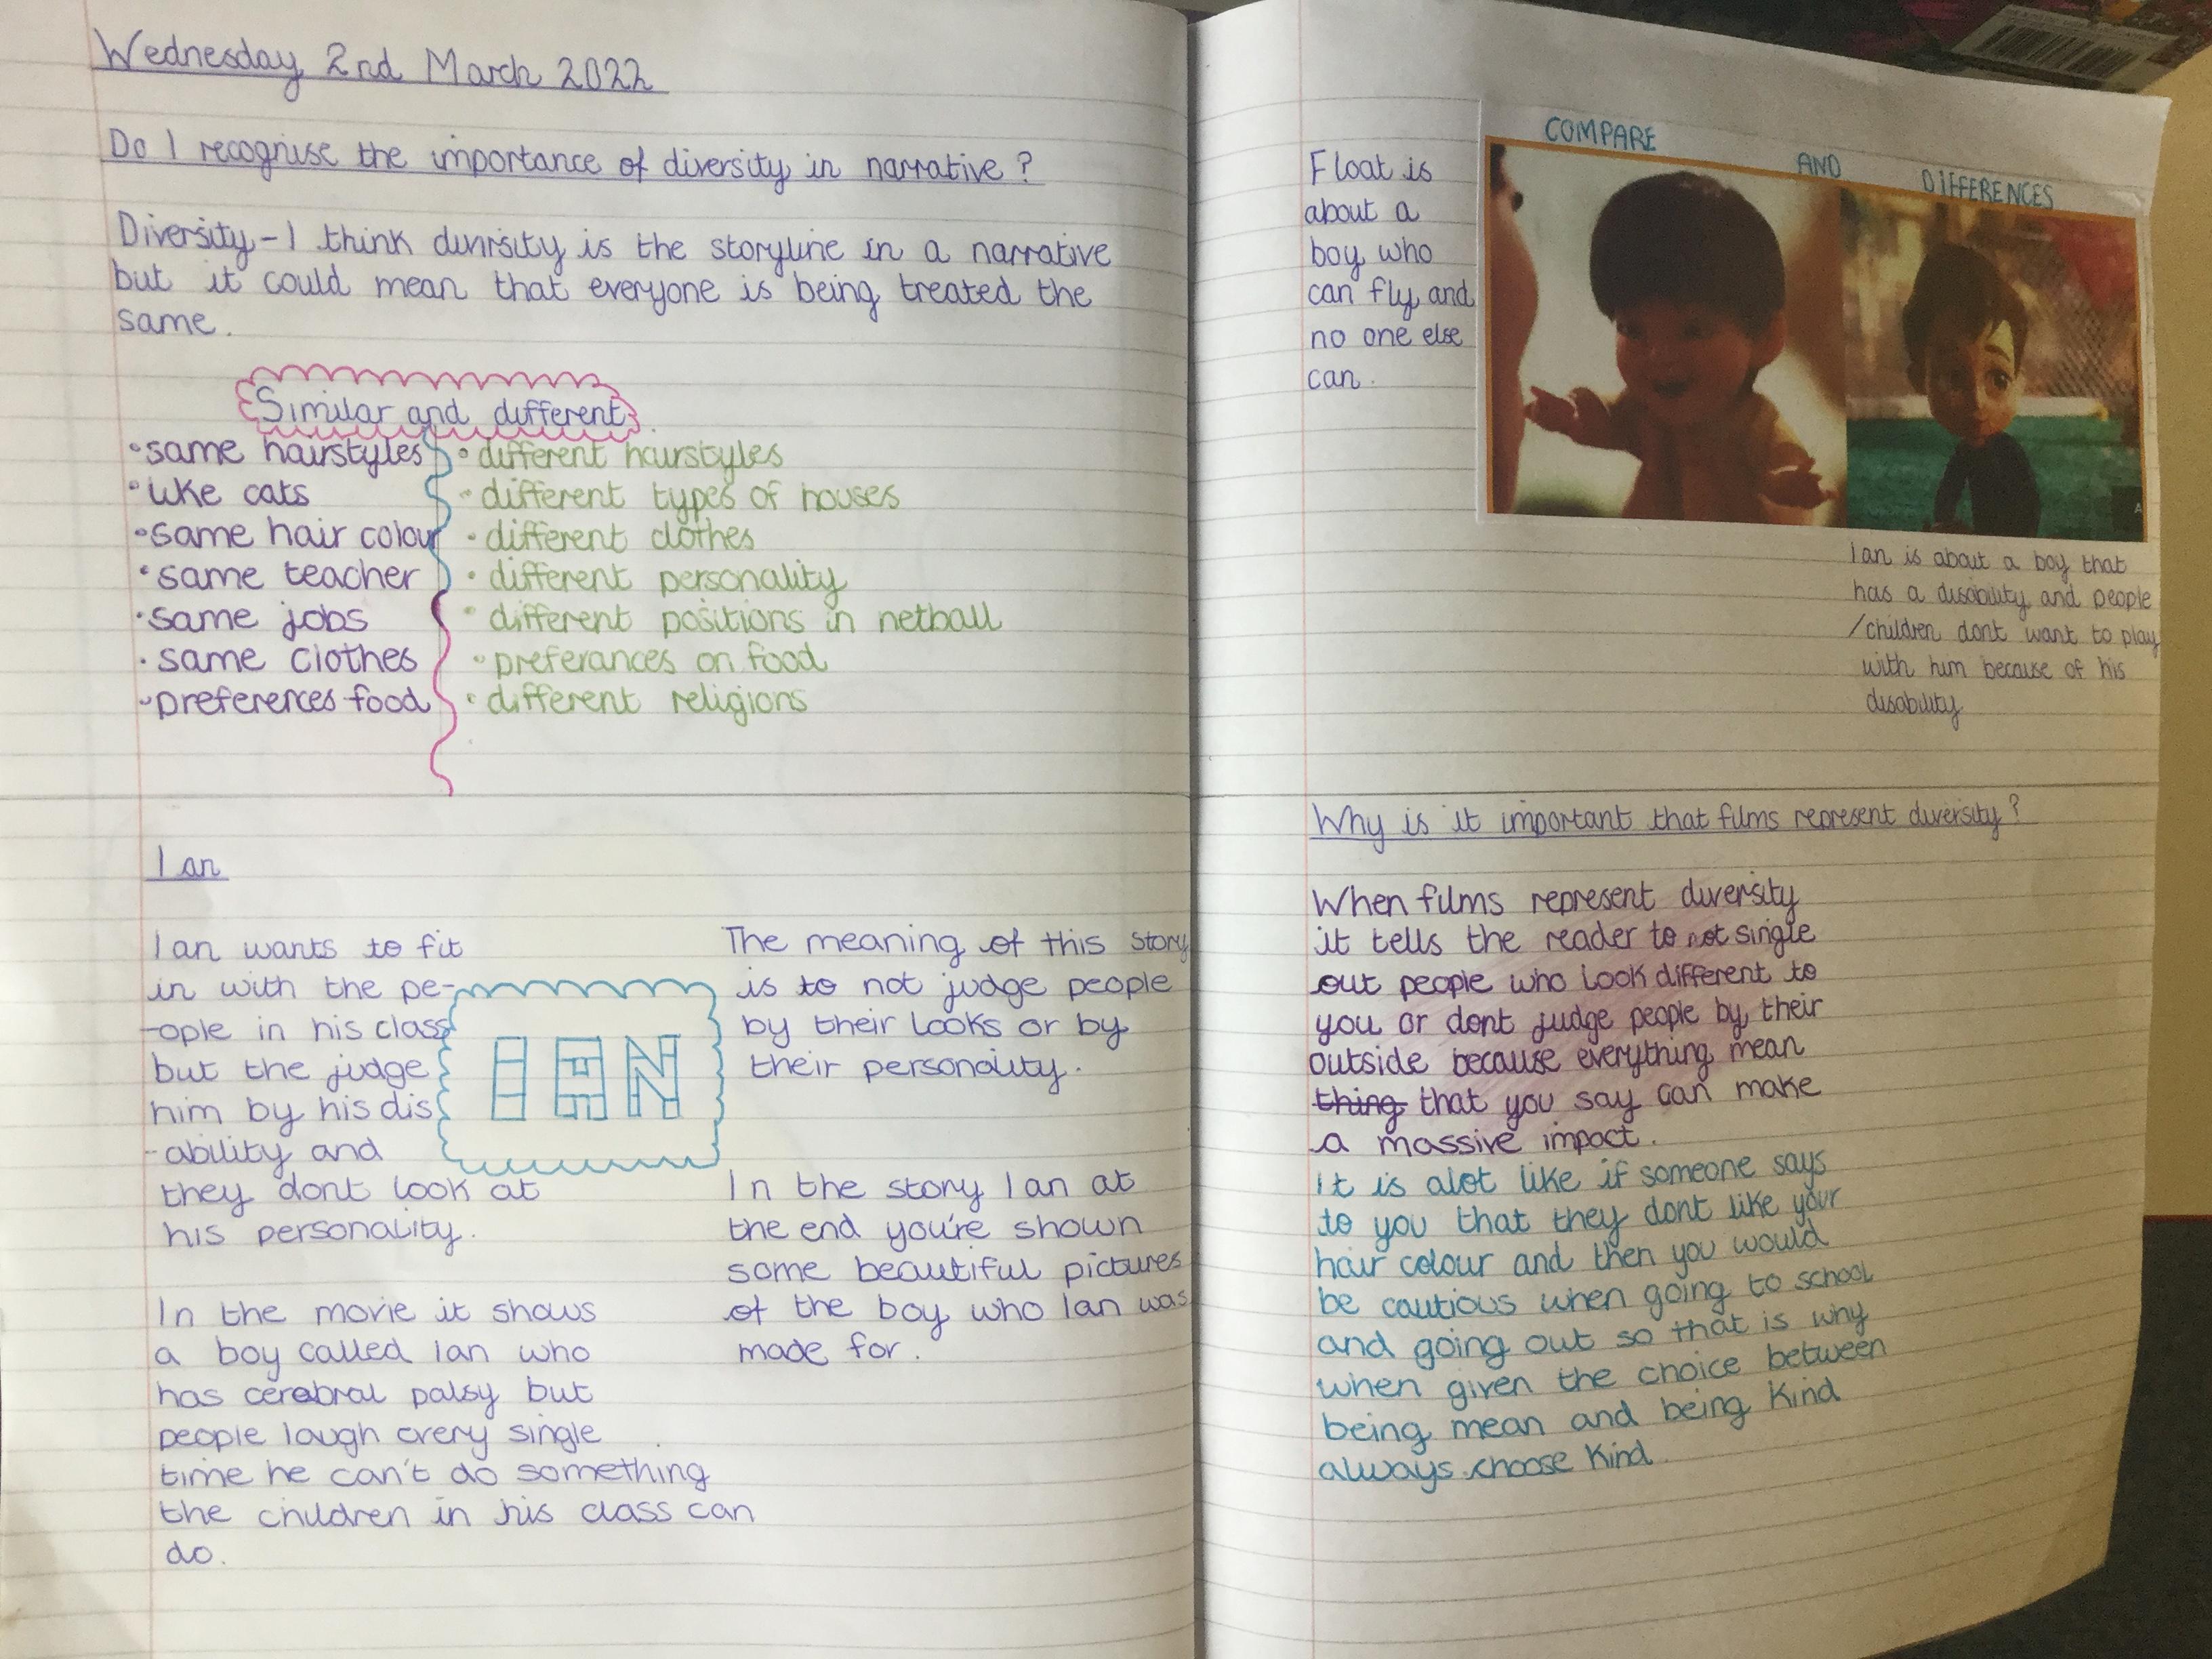 Wednesday 2nd March 2022
Do I recognise the importance of diversity in narrative?
Diversity - I think divirsity is the storyline in a narrative
but it could mean that everyone is being treated the
same.
Similar and different
• same hairstyles
• like cats
• same hair colour
• same teacher
• same jobs
• same clothes
• preferences food
• different hairstyles
• different types of houses
• different clothes
• different personality
• different positions in netball
• preferances on food
• different religions
Ian
Ian wants to fit
in with the pe-
-ople in his class
but the judge
him by his dis
-ability and
they dont look at
his personality.
In the movie it shows
a boy called Ian who
has cerebral palsy but
people laugh every single
time he can't do something
the children in his class can
do.
IAN
The meaning of this story
is to not judge people
by their looks or by
their personality.
In the story Ian at
the end you're shown
some beautiful pictures
of the boy who Ian was
made for.
Float is
about a
boy who
can fly and
no one else
can.
COMPARE AND DIFFERENCES
Ian is about a boy that
has a disability and people
/children dont want to play
with him because of his
disability
Why is it important that films represent diversity?
When films represent diversity
it tells the reader to not single
out people who look different to
you or dont judge people by their
outside because everything mean
thing that you say can make
a massive impact.
It is alot like if someone says
to you that they dont like your
hair colour and then you would
be cautious when going to school
and going out so that is why
when given the choice between
being mean and being kind
always choose kind.